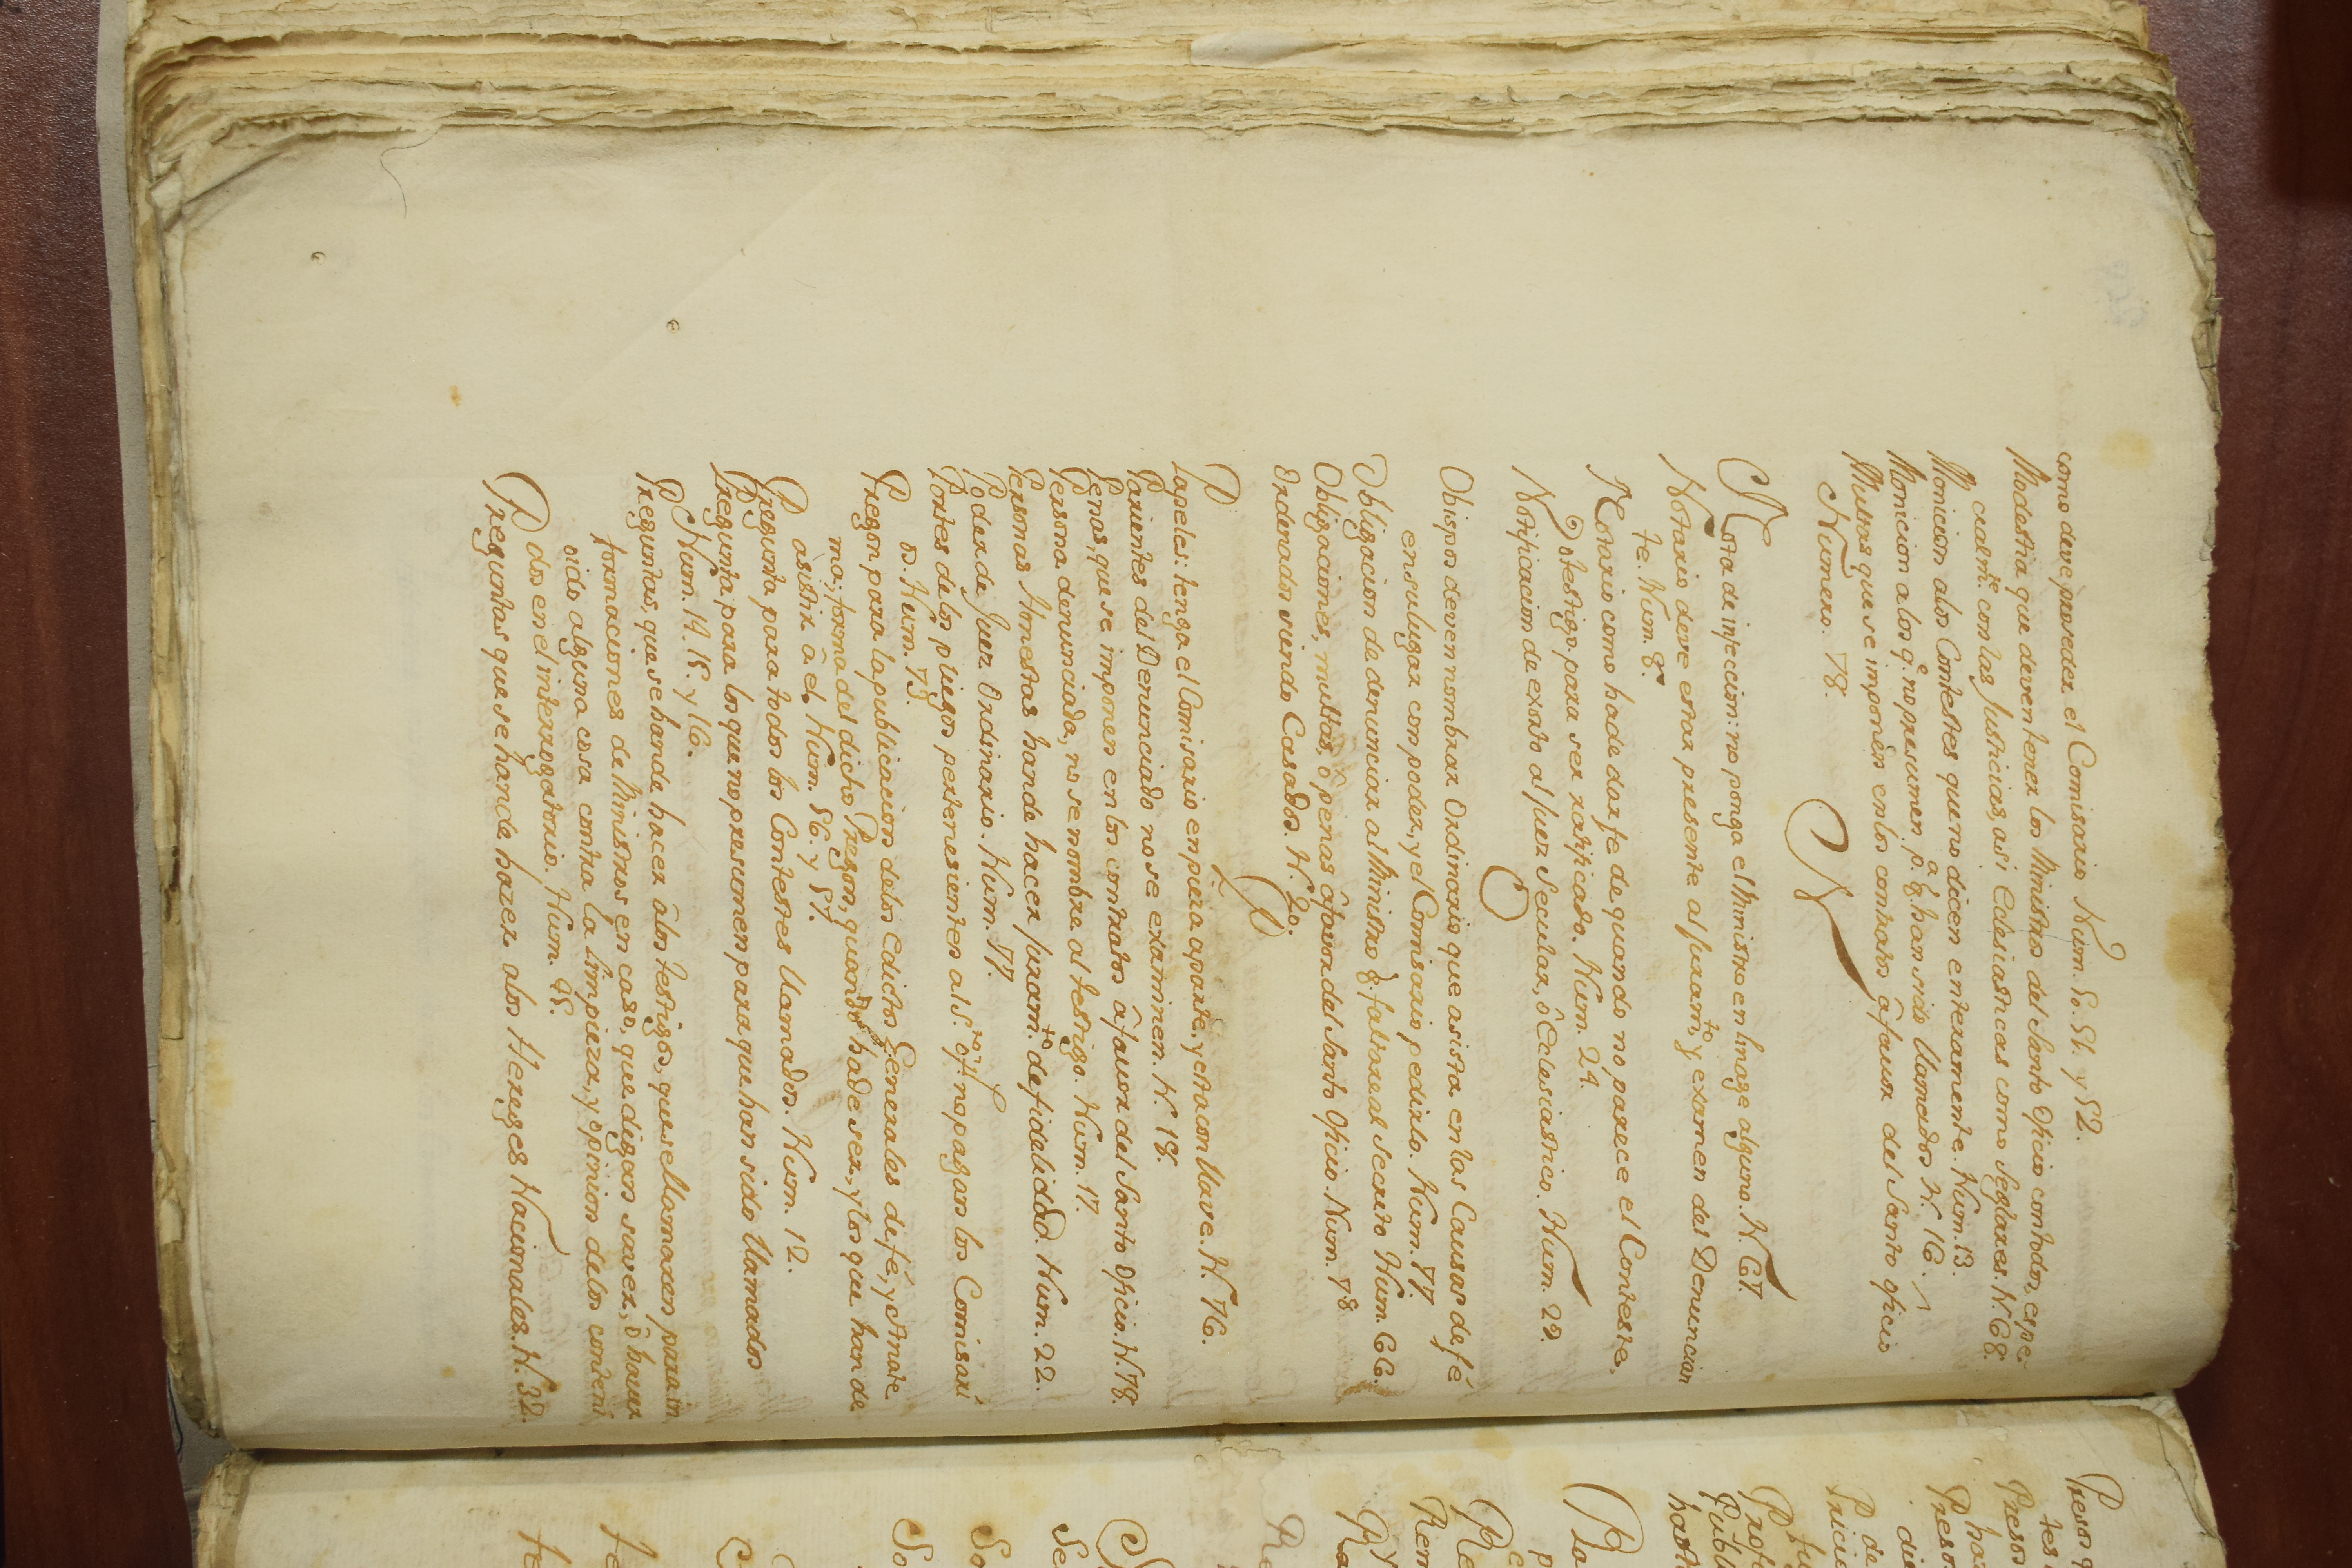 como deve proseder el Comisario Num. 50. 51. y 52.
Modestia que deven tener los Ministros del Santo Oficio con todos, espe-
cialm.te con las Justicias, asi Eclesiasticas como Seglares. N. 68.
Monicion a los Contestes que no dicen enteramente. Num. 13.
Monicion a los q.e no presumen p.a q.e han sido llamados N. 16.
Multas que se imponen en los contratos â favor del Santo oficio
Numero. 78.
N
Nota de infeccion: no ponga el Ministro en linage alguno. N. 67.
Notario deve estar presente al juram.to y examen del Denuncian
te. Num. 8.
Notario como ha de dar fe de quando no parece el Conteste,
o testigo para ser ratificado. Num. 24.
Notificacion de exorto al Juez Secular, ô Eclesiastico. Num. 29.
O
Obispos deven nombrar Ordinario que asista en las Causas de fé
en su lugar con poder, y el Comisario pedirlo. Num. 77.
Obligacion de denunciar al Ministro q. faltare al secreto Num. 66.
Obligaciones, multas, ô penas â favor del Santo Oficio. Num. 78
Ordenados siendo Casados. N. 20.
P
Papeles: tenga el Comisario en pieza aparte, y esta con llave. N. 76.
Parientes del Denunciado no se examinen. N. 18.
Penas, que se imponen en los contratos â favor del Santo Oficio. N. 78.
Persona denunciada, no se nombre al testigo. Num. 17.
Personas Honestas han de hacer juram.to de fidelidad. Num. 22.
Poder de Juez Ordinario. Num. 77.
Portes de los pliegos pertenesientes al S.to of.o no pagan los Comisari
os. Num. 73.
Pregon para la publicacion de los edictos Generales de fé, y Anate
ma; forma del dicho Pregon, quando ha de ser, y los que han de
asistir â el. Num. 56. y 57.
Pregunta para todos los Contestes llamados. Num. 12.
Pregunta para los que no presumen para que han sido llamados
Num. 14. 15. y 16.
Preguntas, que se han de hacer â los testigos, que se llamaren para in
formaciones de Ministros en caso, que digan saver, ô haver
oido alguna cosa contra la limpieza, y opinion de los conteni
dos en el interrogatorio. Num. 45.
Preguntas que se han de hazer a los Hereges Nacionales. N. 32.